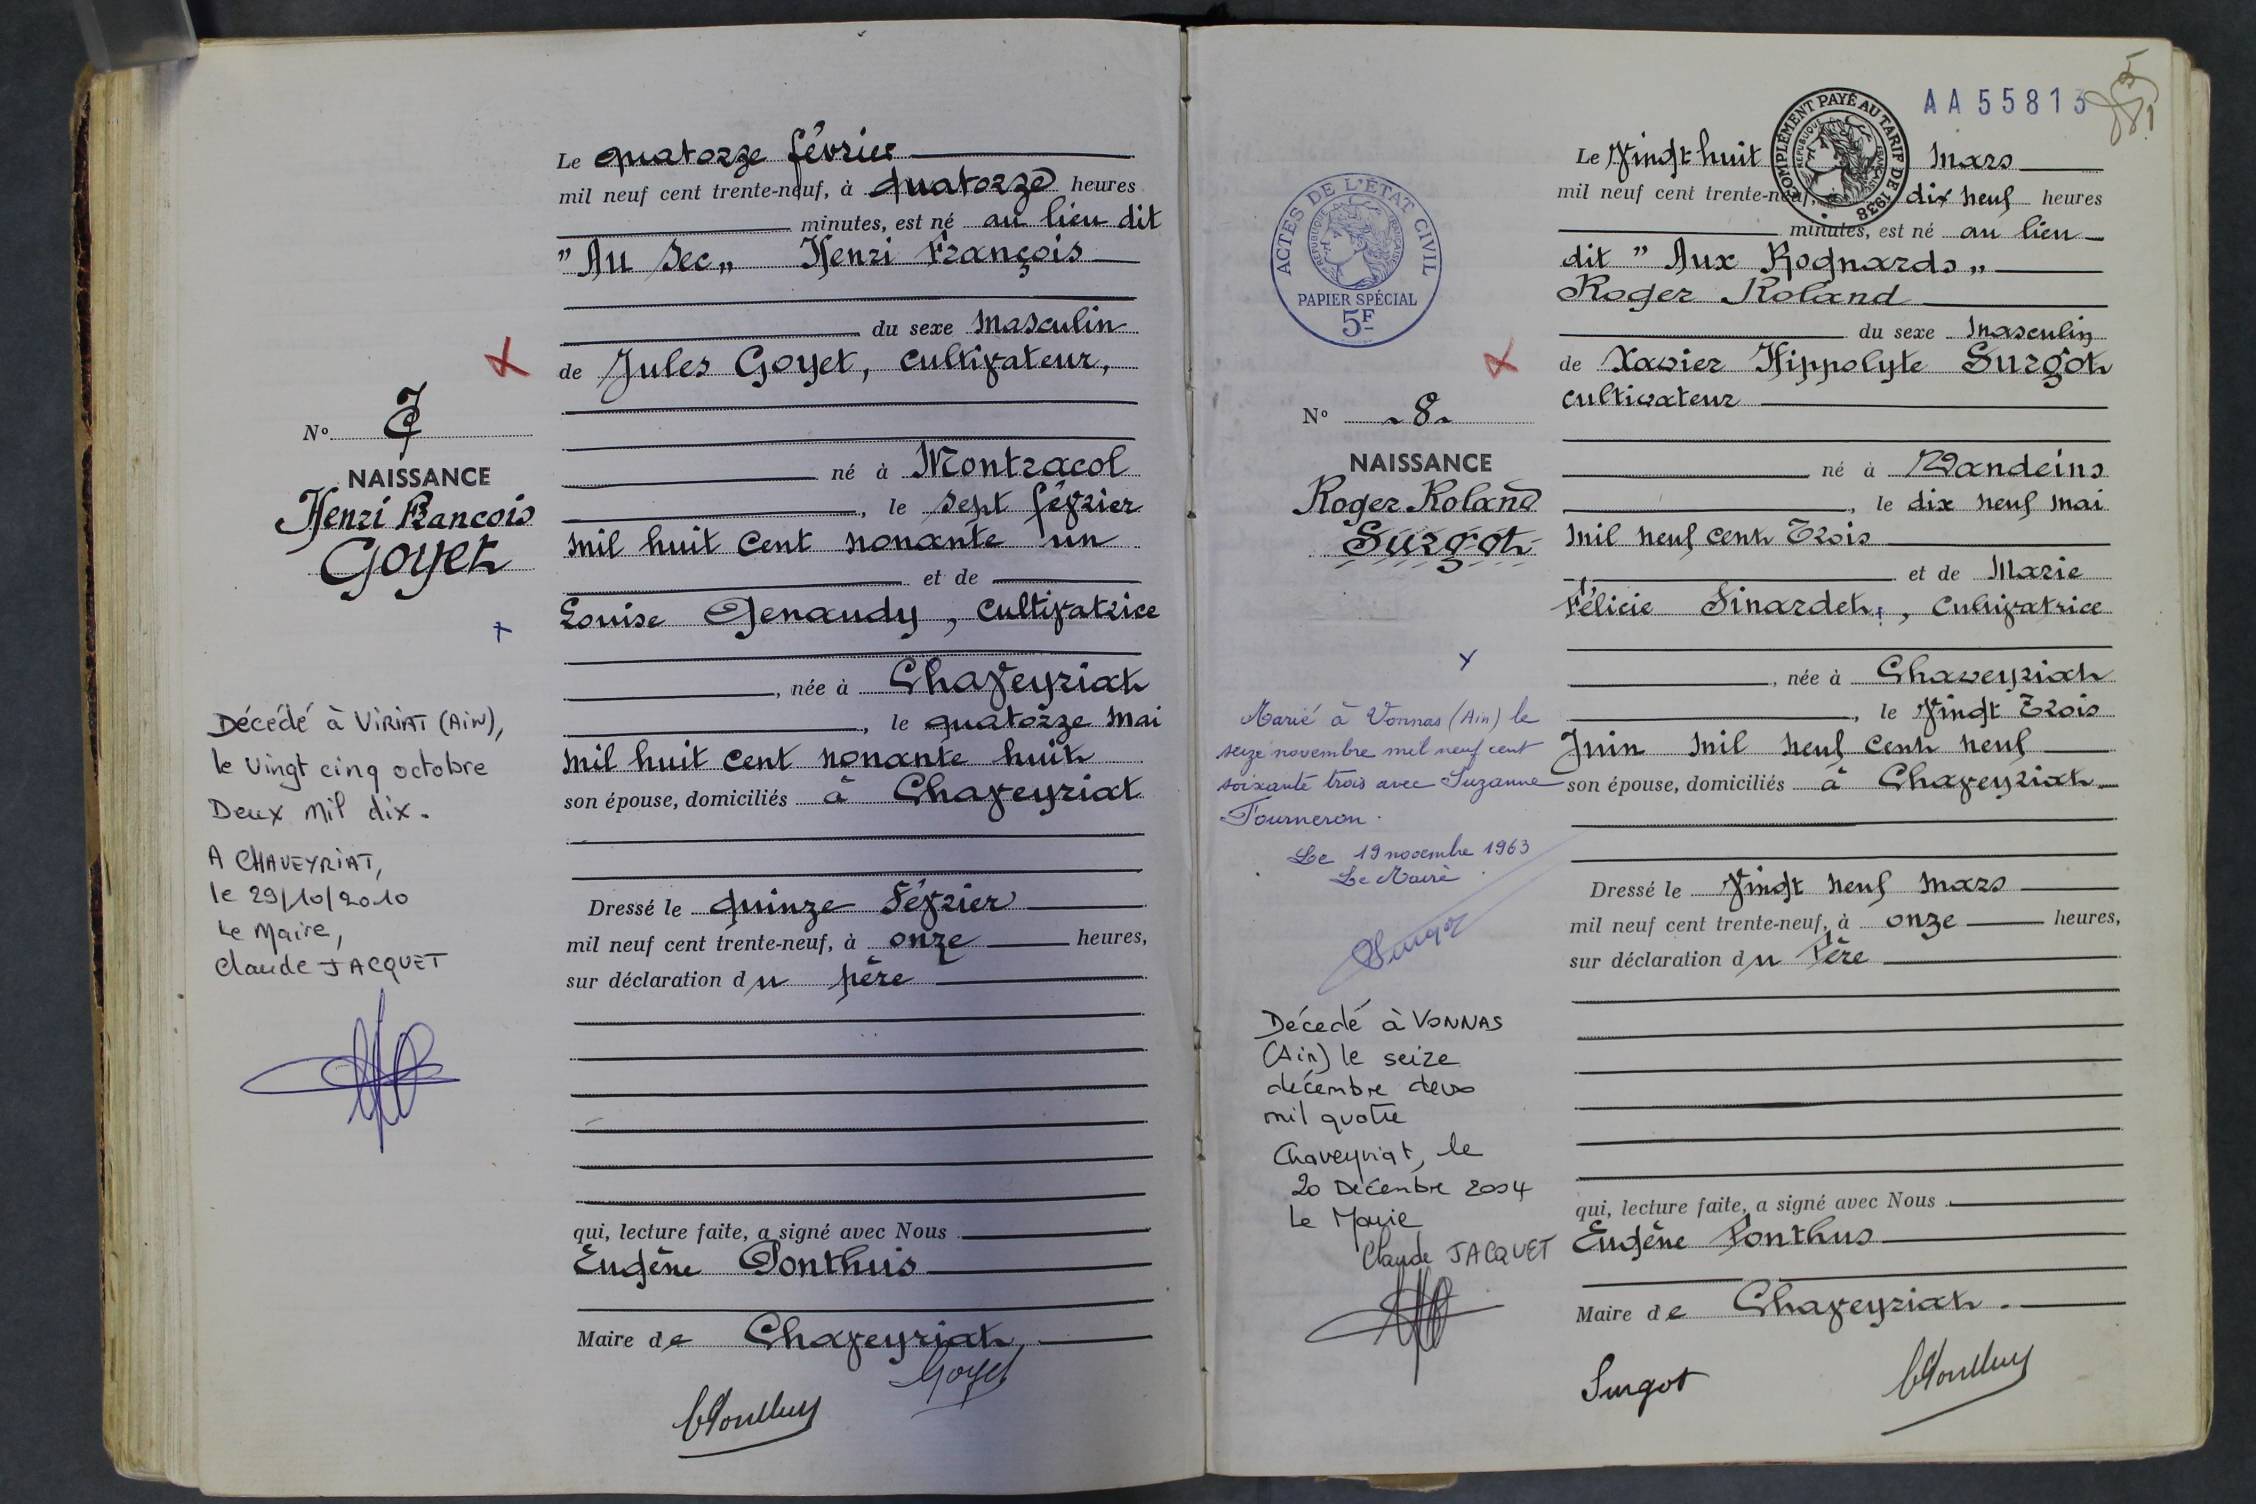 Le quatorze février
mil neuf cent trente-neuf, à quatorze heures
minutes, est né au lieu dit
"Au Sec„ Henri François
du sexe masculin
de Jules Goyet, cultivateur,
né à Montracol
, le sept février
mil huit cent nonante un
et de
Louise Genaudy, cultivatrice
, née à Chaveyriat
, le quatorze mai
mil huit cent nonante huit
son épouse, domiciliés à Chaveyriat
Dressé le quinze Février
mil neuf cent trente-neuf, à onze heures,
sur déclaration du père
qui, lecture faite, a signé avec Nous
Eugène Ponthus
Maire de Chaveyriat
Goyet
N° 7
NAISSANCE
Henri Francois
Goyet
Décédé à VIRIAT (Ain),
le vingt cinq octobre
Deux mil dix.
A CHAVEYRIAT,
le 29/10/2010
Le Maire,
Claude JACQUET
AA55813
COMPLÉMENT PAYÉ AU TARIF DE 1938
RÉPUBLIQUE FRANÇAISE
Le Vingt huit Mars
mil neuf cent trente-neuf, dix neuf heures
minutes, est né au lieu
dit "Aux Rognards„
Roger Roland
du sexe masculin
de Xavier Hippolyte Surgot
cultivateur
né à Vandeins
, le dix neuf mai
mil neuf cent Trois
et de Marie
Félicie Sinardet, cultivatrice
, née à Chaveyriat
, le Vingt Trois
Juin mil neuf cent neuf
son épouse, domiciliés à Chaveyriat
Dressé le Vingt neuf mars
mil neuf cent trente-neuf, à onze heures,
sur déclaration du Père
qui, lecture faite, a signé avec Nous
Eugène Ponthus
Maire de Chaveyriat.
Surgot
ACTES DE L'ÉTAT CIVIL
RÉPUBLIQUE FRANÇAISE
PAPIER SPÉCIAL
5F
N° 8
NAISSANCE
Roger Roland
Surgot
Marié à Vonnas (Ain) le
seize novembre mil neuf cent
soixante trois avec Suzanne
Tourneron.
Le 19 novembre 1963
Le Maire
Surgot
Décedé à VONNAS
(Ain) le seize
decembre deux
mil quatre
Chaveyriat, le
20 Decembre 2004
Le Maire
Claude JACQUET